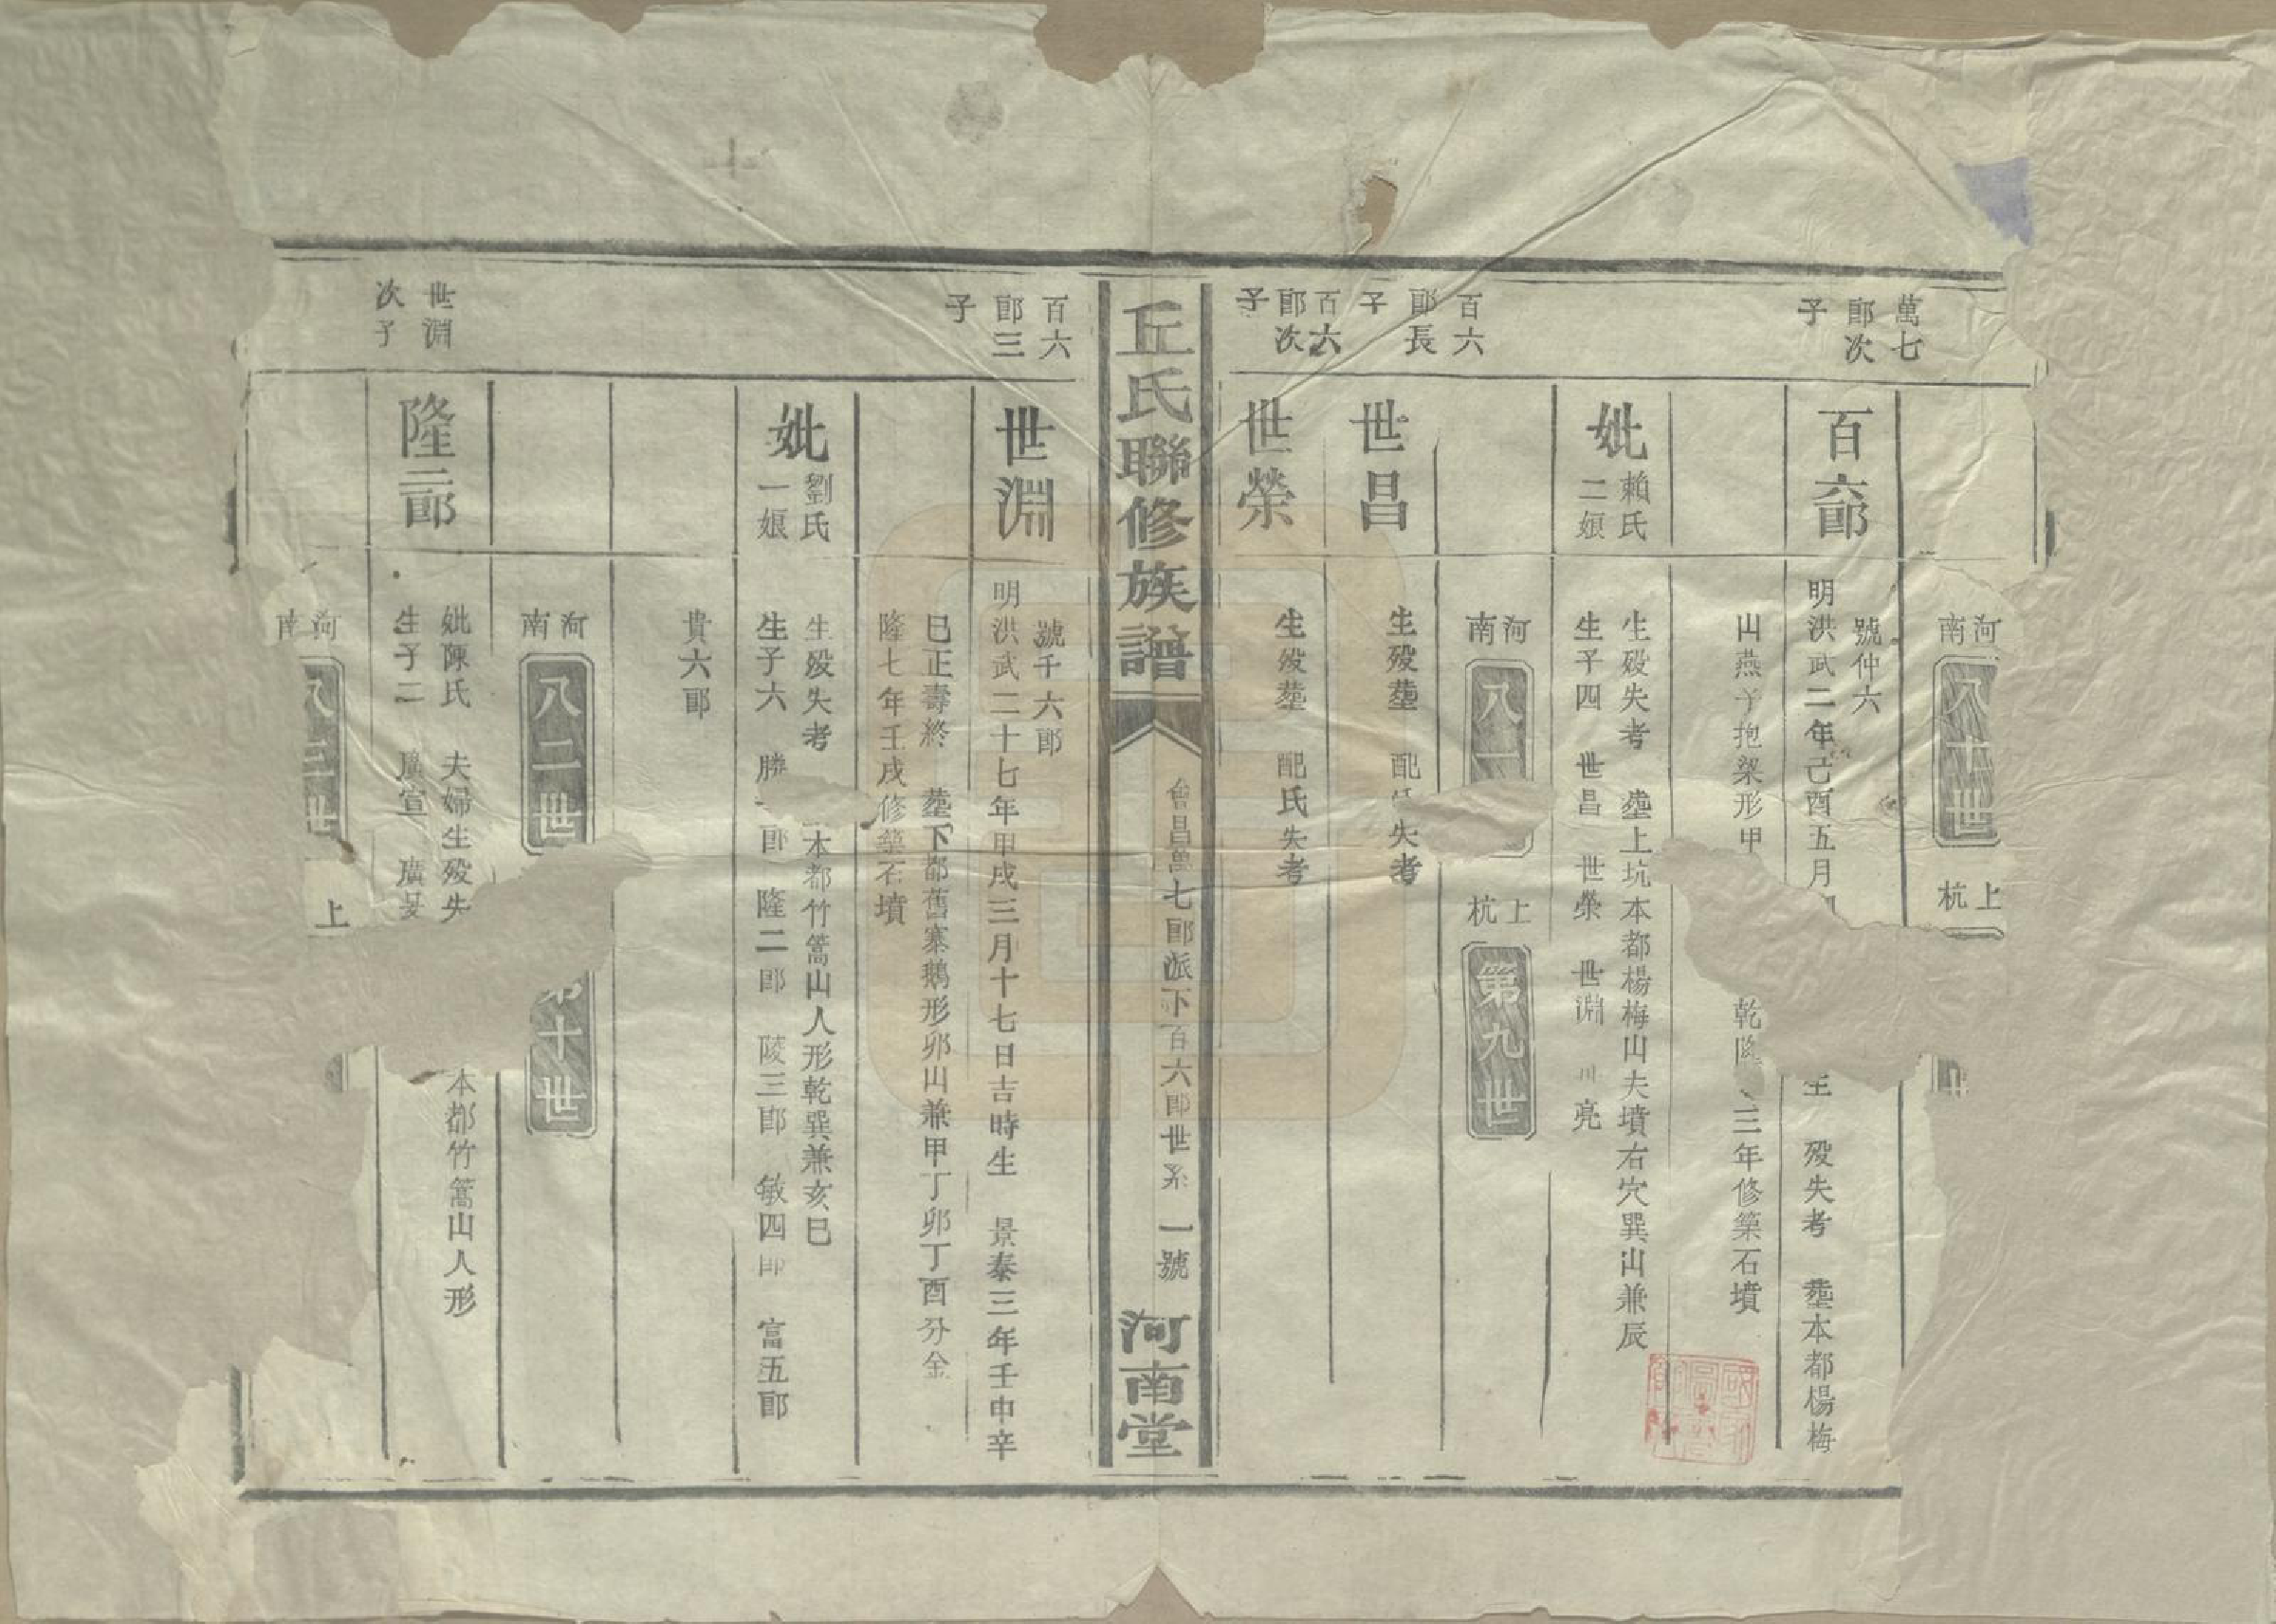 河南 八十世 上杭
萬七郎次子
百六郎
號仲六
明洪武二年己酉五月
生 殁失考 塟本都楊梅
山燕子抱梁形甲
乾隆
三年修築石墳
妣賴氏二娘
生殁失考 塟上坑本都楊梅山夫墳右穴巽山兼辰
生子四 世昌 世榮 世淵
亮
河南 八一 上杭 第九世
百六郎長子
世昌
生殁塟 配
失考
百六郎次子
世榮
生殁塟 配氏失考
丘氏聯修族譜
會昌萬七郎派下百六郎世系 一號
河南堂
百六郎三子
世淵
號千六郎
明洪武二十七年甲戌三月十七日吉時生 景泰三年壬申辛
巳正壽終 塟下都舊寨鵝形卯山兼甲丁卯丁酉分金
隆七年壬戌修築石墳
妣劉氏一娘
生殁失考
本都竹篙山人形乾巽兼亥巳
生子六 勝
郎 隆二郎 陵三郎 敏四郎 富五郎
貴六郎
河南 八二世
第十世
世淵次子
隆二郎
妣陳氏 夫婦生殁失
本都竹篙山人形
生子二 廣宣 廣旻
河南 八三世 上